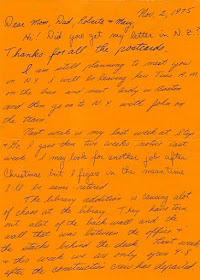 Nov. 2, 1975
Dear Mom, Dad, Roberta & Mary,
Hi! Did you get my letter in N.Z.?
Thanks for all the postcards.
I am still planning to meet you
in N.Y. I will be leaving here Tues. A.M.
on the bus and meet Andy in Boston
and then go to N.Y. with John on
the train.
Next week is my last week at
& Go. I gave them two weeks notice last
week. I may look for another job after
Christmas but I figure in the meantime
I'll be semi retired.
The library addition is causing alot
of chaos at the library. They have torn
out alot of the back wall and the
wall that was between the office &
the stacks behind the desk. Next week
& this week we are only open 4-8
after the construction crew has departed